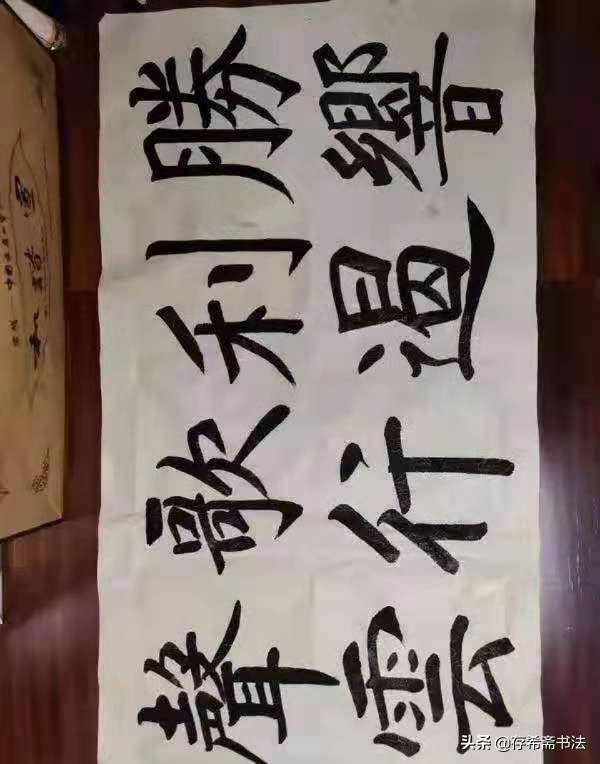 勝利歌聲
響遏行雲
头条 @存希斋书法